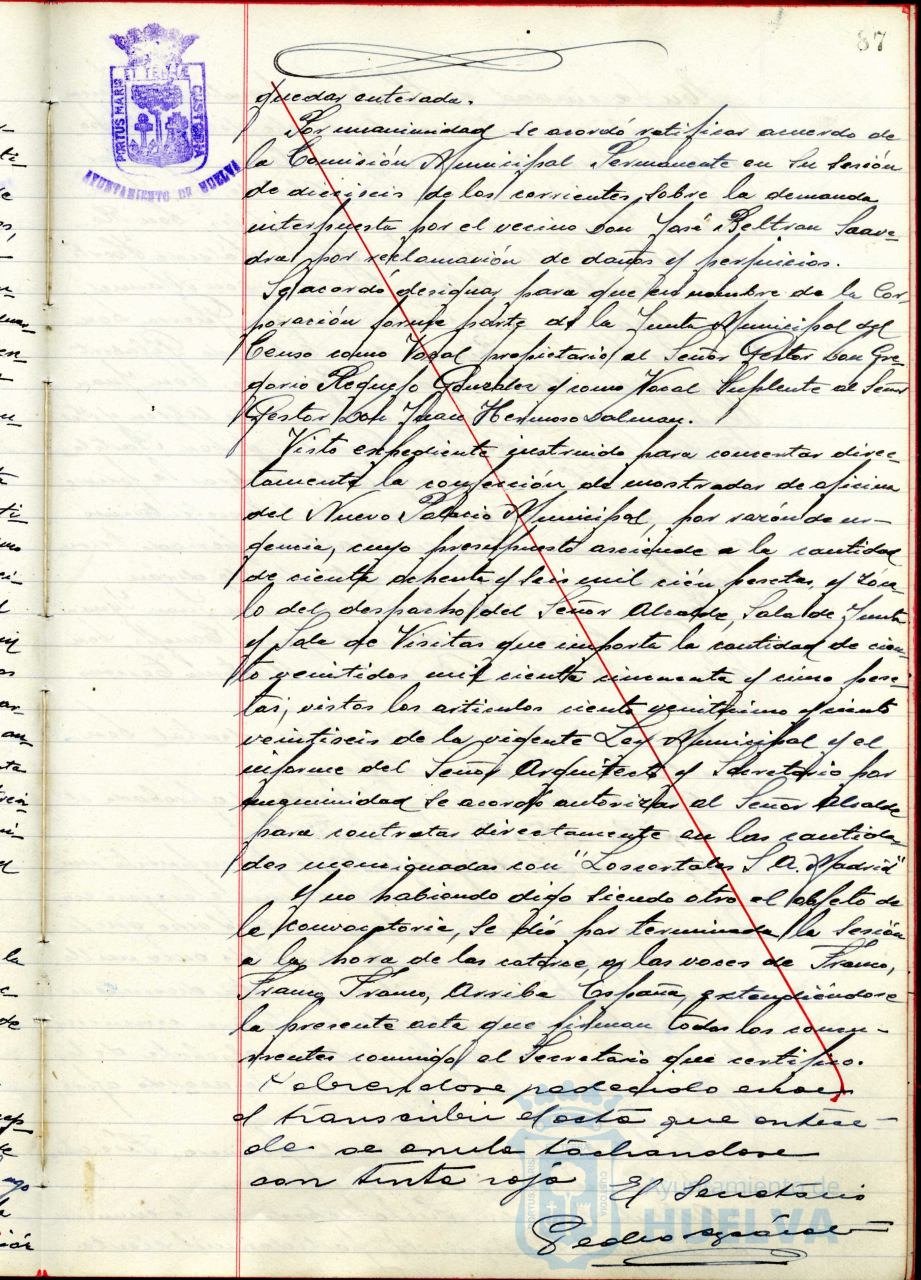 87
PORTUS MARIS ET TERRE CUSTODIA
AYUNTAMIENTO DE HUELVA
quedar enterada.
Por unanimidad se acordó ratificar acuerdo de
la Comisión Municipal Permanente en su sesión
de dieciseis de los corrientes, sobre la demanda
interpuesta por el vecino Don José Beltran Saave-
dra por reclamación de daños y perjuicios.
Se acordó designar para que en nombre de la Cor
poración forme parte de la Junta Municipal del
Censo como Vocal propietario al Señor Gestor Don Gre
gorio Requejo Gonzalez y como Vocal Suplente al Señor
Gestor Don Juan Hermoso Dalman.
Visto expediente instruido para concertar direc-
tamente la confección de mostrador de oficina
del Nuevo Palacio Municipal, por razón de ur-
gencia, cuyo presupuesto asciende a la cantidad
de ciento ochenta y seis mil cien pesetas, y zóca
lo del despacho del Señor Alcalde, Sala de Junta
y Sala de Visitas que importa la cantidad de cien-
to veintidos mil ciento cincuenta y cinco pese-
tas, vistos los articulos ciento veinticinco y ciento
veintiseis de la vigente Ley Municipal y el
informe del Señor Arquitecto y Secretario por
unanimidad se acordo autorizar al Señor Alcalde
para contratar directamente en las cantida-
des mencionadas con " S.A. Madrid"
Y no habiendo digo siendo otro el objeto de
la convocatoria, se dió por terminada la sesión
a la hora de las catorce, a las voces de Franco,
Franco, Franco, Arriba España, extendiéndose
la presente acta que firman todos los concu-
rrentes conmigo el Secretario que certifico.
Habiendose padecido error
al transcribir el acta que antece-
de se anula tachandose
con tinta roja El Secretario
Pedro
Ayuntamiento de
HUELVA